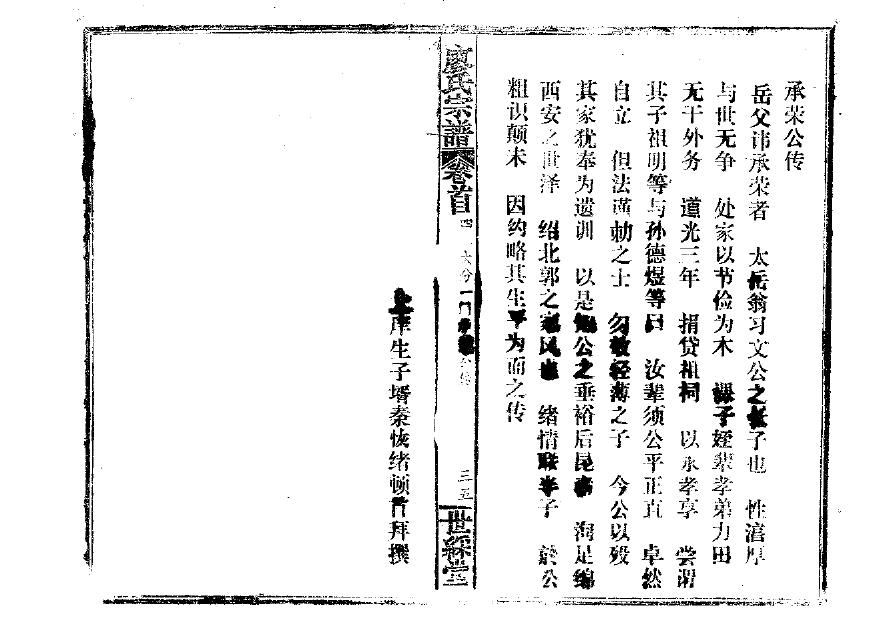 承荣公传
岳父讳承荣者 太岳翁习文公之长子也 性浑厚
与世无争 处家以节俭为本 课子姪辈孝弟力田
无干外务 道光三年 捐贷祖祠 以永孝享 尝谓
其子祖明等与孙德煜等曰 汝辈须公平正直 卓然
自立 但法谨勅之士 勿效轻薄之子 今公以殁
其家犹奉为遗训 以是 公之垂裕后昆 洵足绵
西安之世泽 绍北郭之家风也 绪情联半子 於公
粗识颠末 因约略其生平为而之传
庠生子壻秦恢绪顿首拜撰
廖氏宗譜
卷首
四
六分
三五
世綵堂